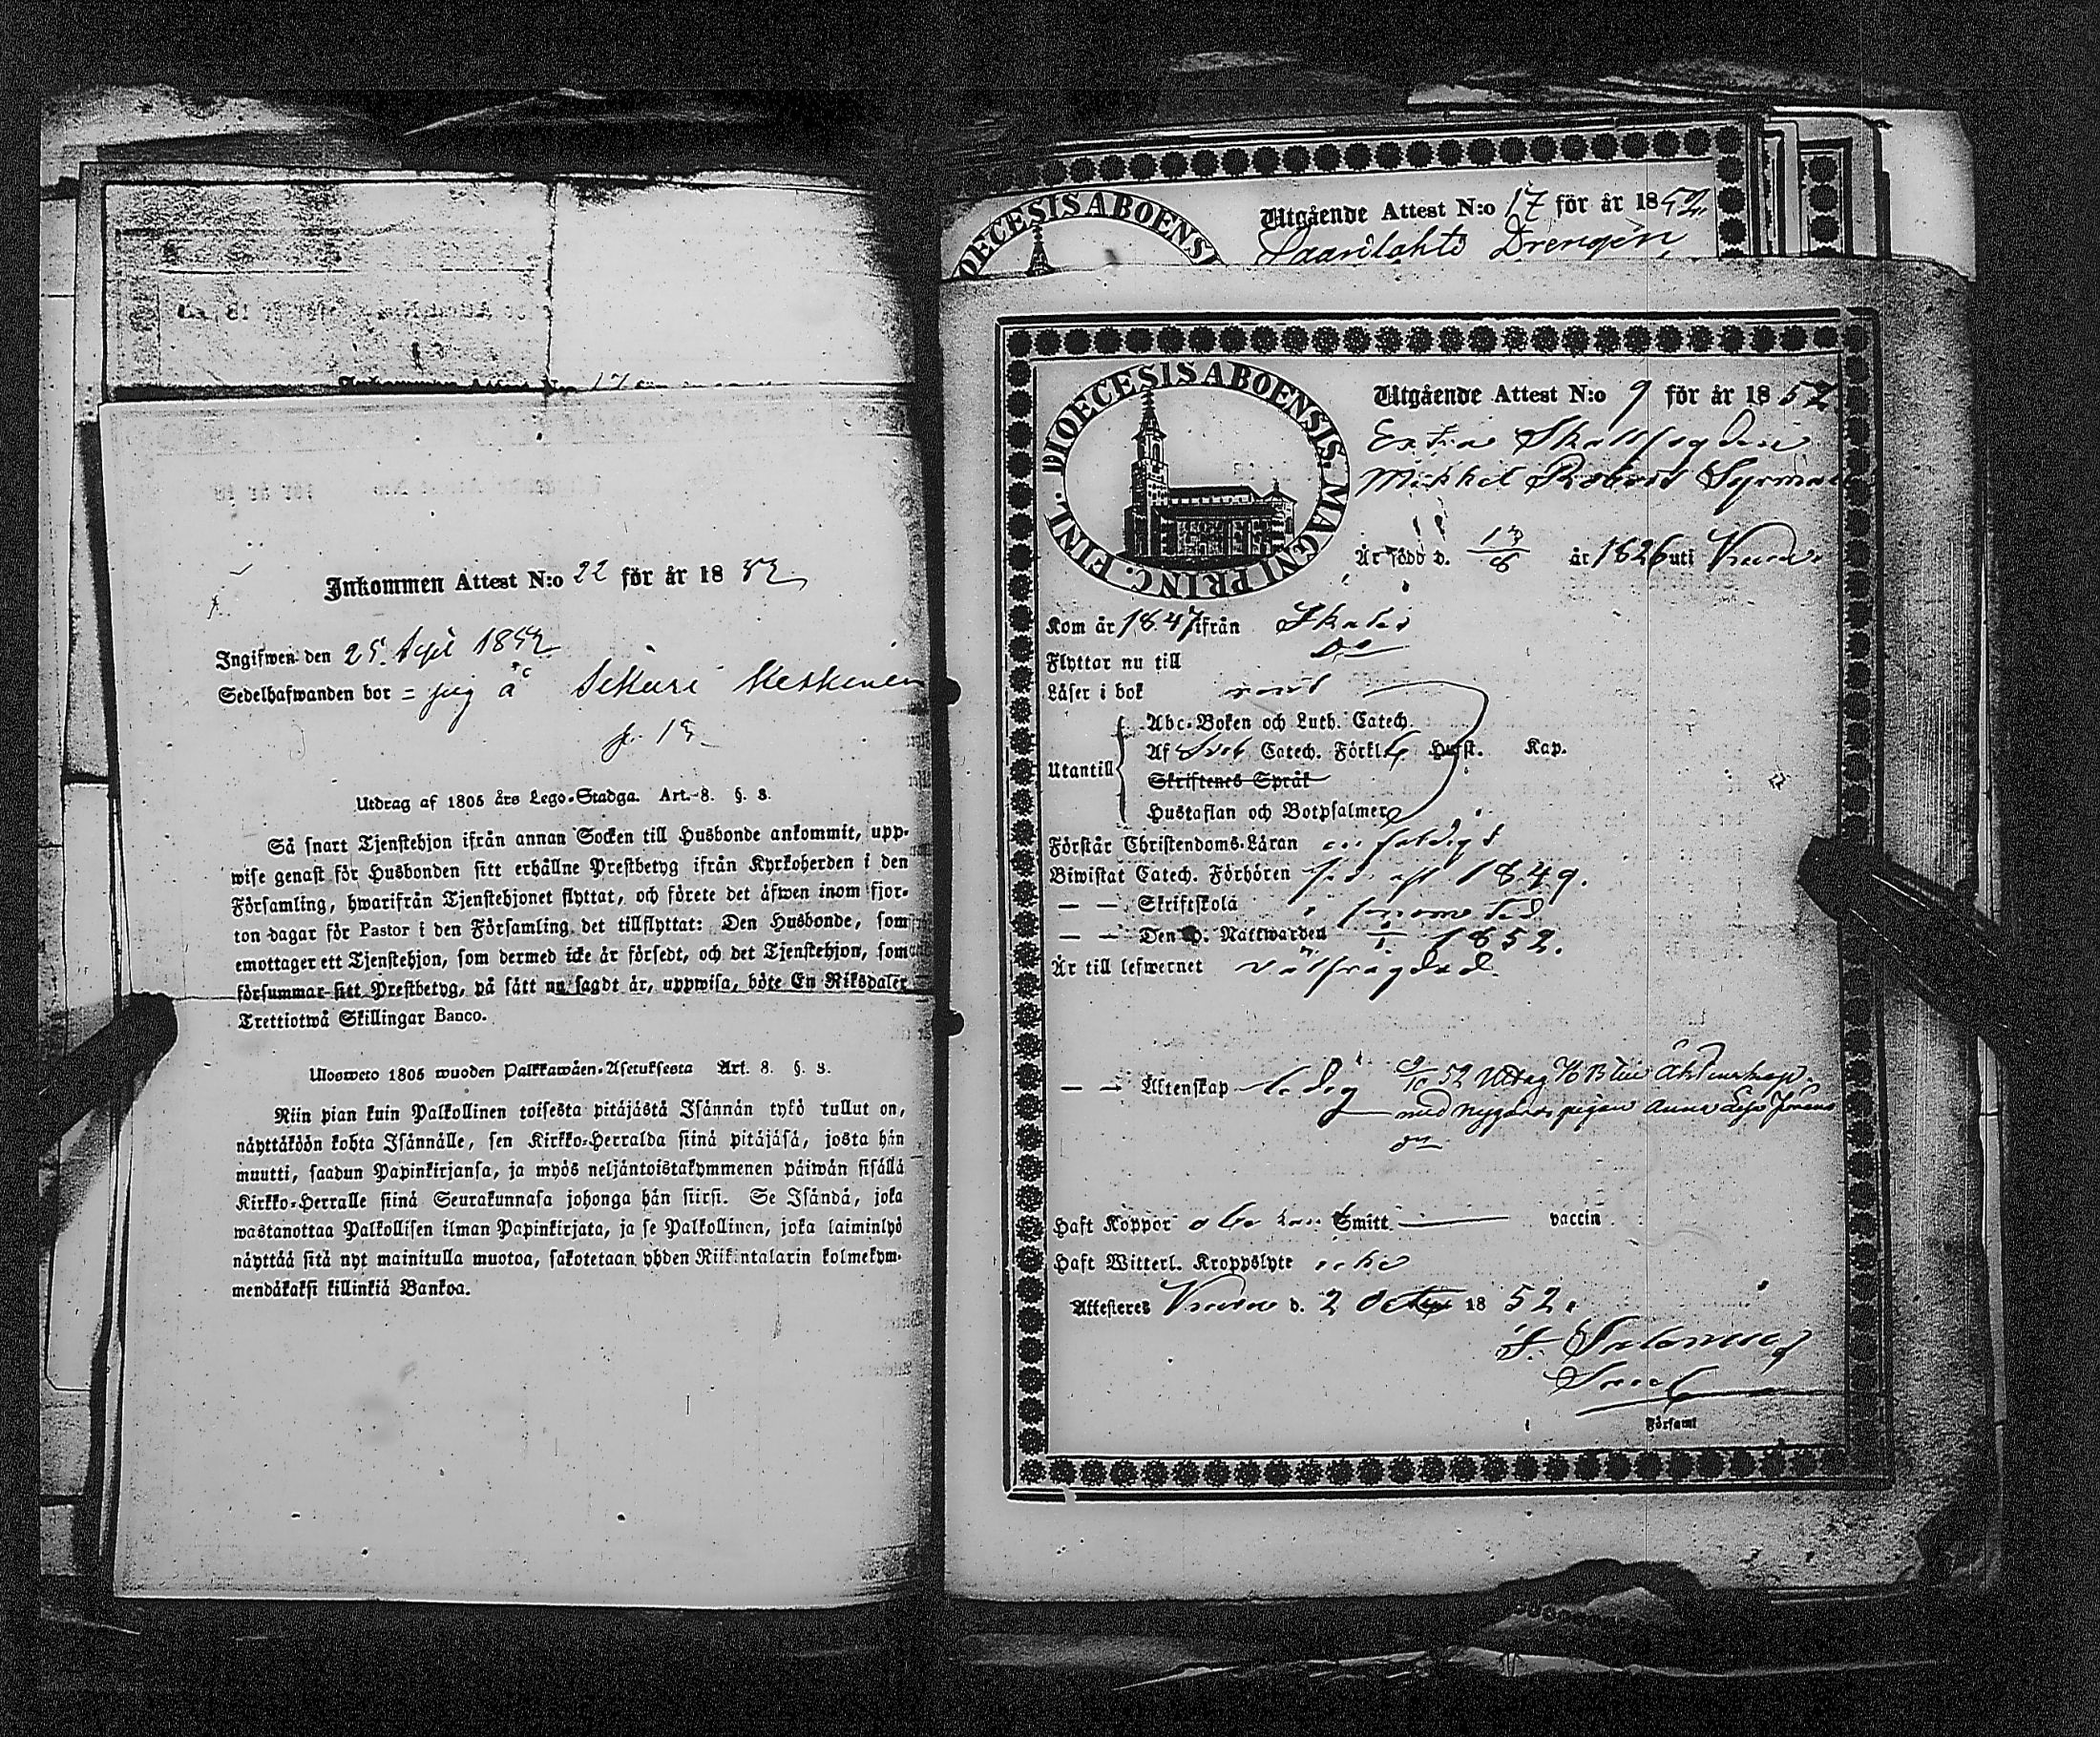 Inkommen Attest N:o 22 för år 1852
Ingifwen den 25. Sept 1852
Sedelhafwanden bor = pig å
Utdrag af 1805 års Lego-Stadga. Art. 8. §. 3.
Så snart Tjenstehjon ifrån annan Socken till Husbonde ankommit, upp-
wise genast för Husbonden sitt erhållne Prestbetyg ifrån Kyrkoherden i den
Församling, hwarifrån Tjenstehjonet flyttat, och förete det äfwen inom fjor-
ton dagar för Pastor i den Församling det tillflyttat: Den Husbonde, som
emottager ett Tjenstehjon, som dermed icke är försedt, och det Tjenstehjon, som
försummar sitt Prestbetyg, på sätt nu sagdt är, uppwisa, böte En Riksdaler
Trettiotwå Skillingar Banco.
Ulosweto 1805 wuoden Palkkawäen-Asetuksesta Art. 8. §. 3.
Niin pian kuin Palkollinen toisesta pitäjästä Isännän tykö tullut on,
näyttäköön kohta Isännälle, sen Kirkko-Herralda siinä pitäjäsä, josta hän
muutti, saadun Papinkirjansa, ja myös neljäntoistakymmenen päiwän sisällä
Kirkko-Herralle siinä Seurakunnasa johonga hän siirsi. Se Isändä, joka
wastanottaa Palkollisen ilman Papinkirjata, ja se Palkollinen, joka laiminlyö
näyttää sitä nyt mainitulla muotoa, sakotetaan yhden Riikintalarin kolmekym-
mendäkaksi killinkiä Bankoa.
DIOECESIS ABOENS
Utgående Attest N:o 17 för år 1852.
Saarilahti Drengen
DIOECESIS ABOENSIS. MAGNI PRINC. FINL.
Utgående Attest N:o 9 för år 1852.
Extra
Mikkel Robert
Är född d. 13/8 år 1826 uti
Kom år 1847 ifrån
Flyttar nu till Do
Läser i bok rent
Utantill
Abc-Boken och Luth. Catech.
Af Sveb Catech. Förkl. 6 Hufst. Kap.
Skriftenes Språk
Hustaflan och Botpsalmer
Förstår Christendoms-Läran enfaldigt
Biwistat Catech. Förhören 1849.
— — Skriftskola
— — Den H. Nattwarden 1852.
Är till lefwernet välfrägdad.
— — Äktenskap ledig 9/10 52 Uttag till Äktenskap
med pigan Anna
Haft Koppor Smitt. vaccin
Haft Witterl. Kroppslyte icke
Attesteres d. 2 October 1852.
Församl